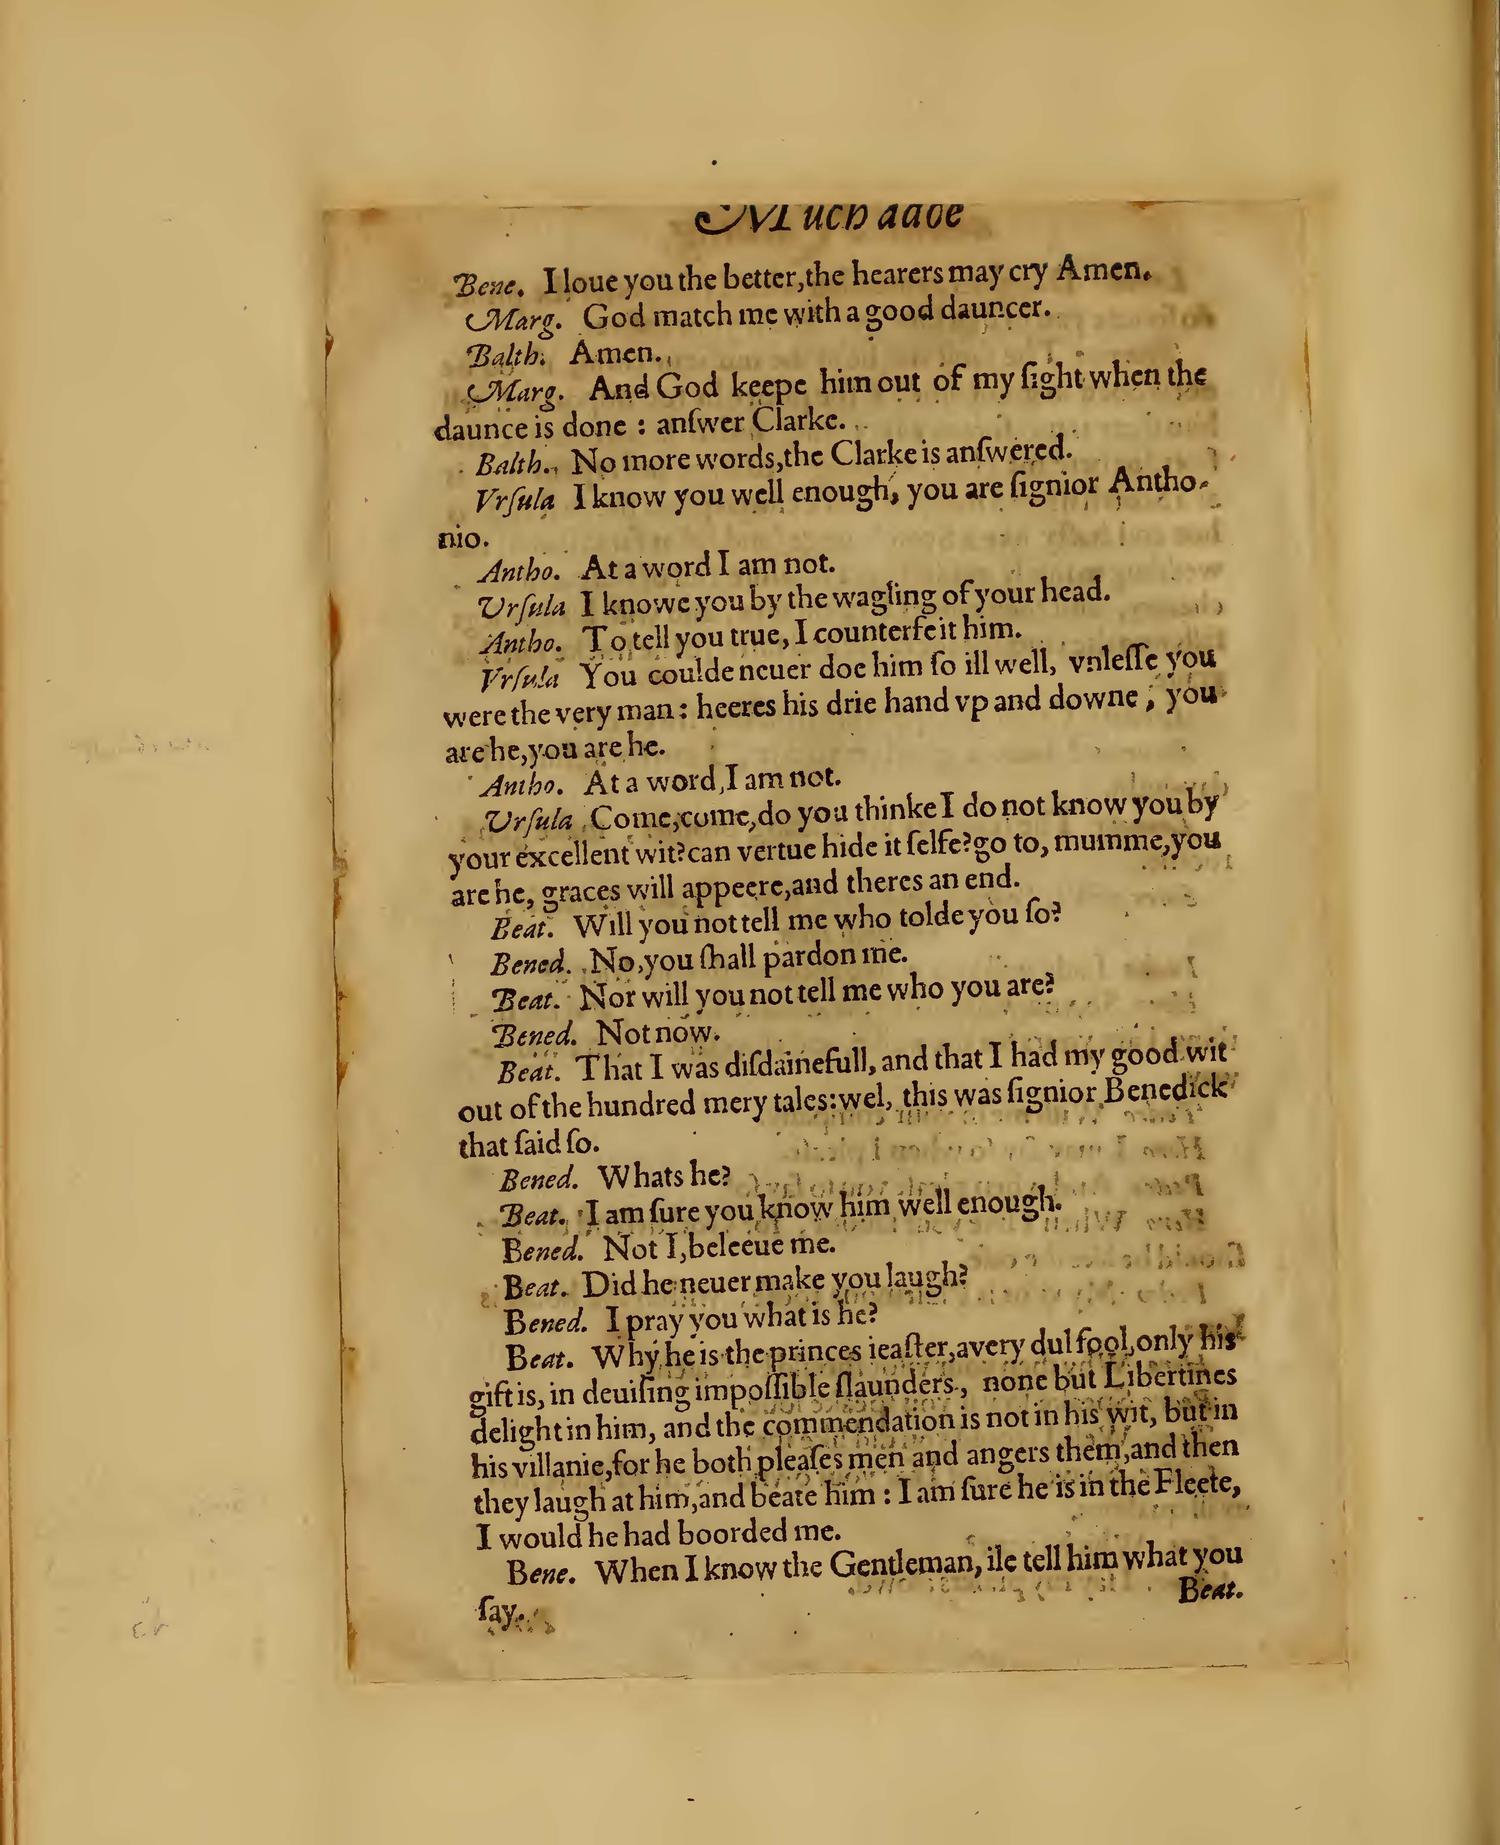 Much adoe
Bene. I loue you the better,the hearers may cry Amen.
Marg. God match me with a good dauncer.
Balth. Amen.
Marg. And God keepe him out of my ſight when the
daunce is done : anſwer Clarke.
Balth. No more words,the Clarke is anſwered.
Vrſula I know you well enough, you are ſignior Antho-
nio.
Antho. At a word I am not.
Vrſula I knowe you by the wagling of your head.
Antho. To tell you true, I counterfeit him.
Vrſula You coulde neuer doe him ſo ill well, vnleſſe you
were the very man : heeres his drie hand vp and downe , you
are he,you are he.
Antho. At a word,I am not.
Vrſula Come,come,do you thinke I do not know you by
your excellent wit?can vertue hide it ſelfe?go to, mumme,you
are he, graces will appeere,and theres an end.
Beat. Will you not tell me who tolde you ſo?
Bened. No,you ſhall pardon me.
Beat. Nor will you not tell me who you are?
Bened. Not now.
Beat. That I was diſdainefull, and that I had my good wit
out of the hundred mery tales:wel, this was ſignior Benedick
that ſaid ſo.
Bened. Whats he?
Beat. I am ſure you know him well enough.
Bened. Not I,beleeue me.
Beat. Did he neuer make you laugh?
Bened. I pray you what is he?
Beat. Why he is the princes ieaſter,a very dul fool,only his
gift is, in deuiſing impoſſible ſlaunders, none but Libertines
delight in him, and the commendation is not in his wit, but in
his villanie,for he both pleaſes men and angers them,and then
they laugh at him,and beate him : I am ſure he is in the Fleete,
I would he had boorded me.
Bene. When I know the Gentleman, ile tell him what you
ſay.
Beat.